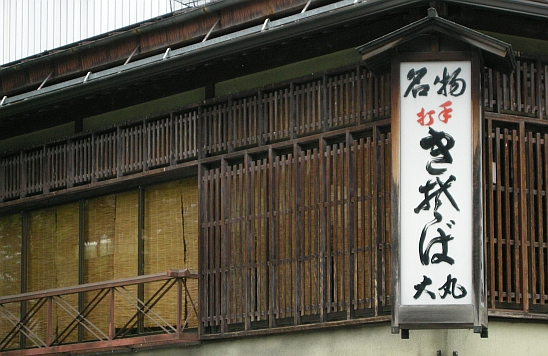 名物
打手
きそば
大丸